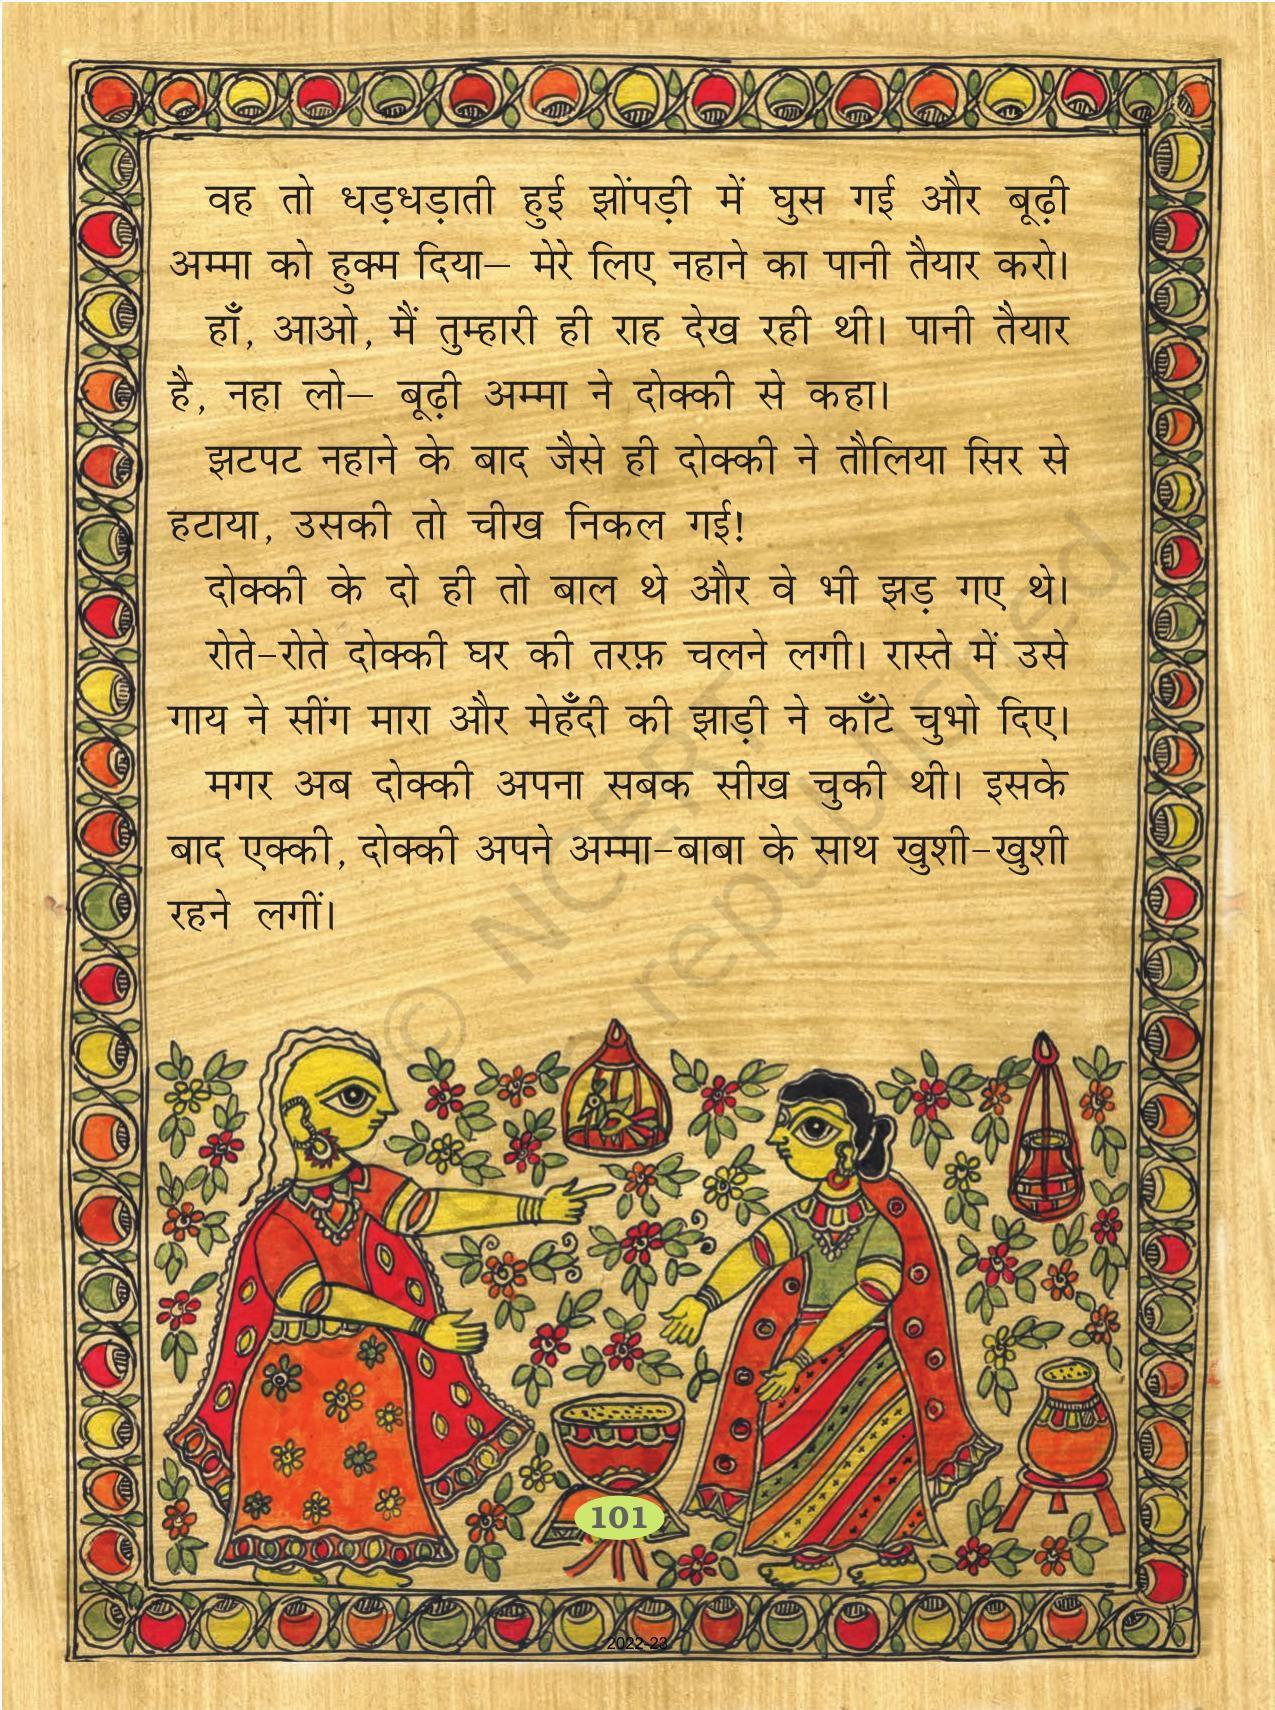 वह तो धड़धड़ाती हुई झोंपड़ी में घुस गई और बूढ़ी
अम्मा को हुक्म दिया– मेरे लिए नहाने का पानी तैयार करो।
हाँ, आओ, मैं तुम्हारी ही राह देख रही थी। पानी तैयार
है, नहा लो– बूढ़ी अम्मा ने दोक्की से कहा।
झटपट नहाने के बाद जैसे ही दोक्की ने तौलिया सिर से
हटाया, उसकी तो चीख निकल गई!
दोक्की के दो ही तो बाल थे और वे भी झड़ गए थे।
रोते-रोते दोक्की घर की तरफ़ चलने लगी। रास्ते में उसे
गाय ने सींग मारा और मेहँदी की झाड़ी ने काँटे चुभो दिए।
मगर अब दोक्की अपना सबक सीख चुकी थी। इसके
बाद एक्की, दोक्की अपने अम्मा-बाबा के साथ खुशी-खुशी
रहने लगीं।
© NCERT
republished
101
2022-23